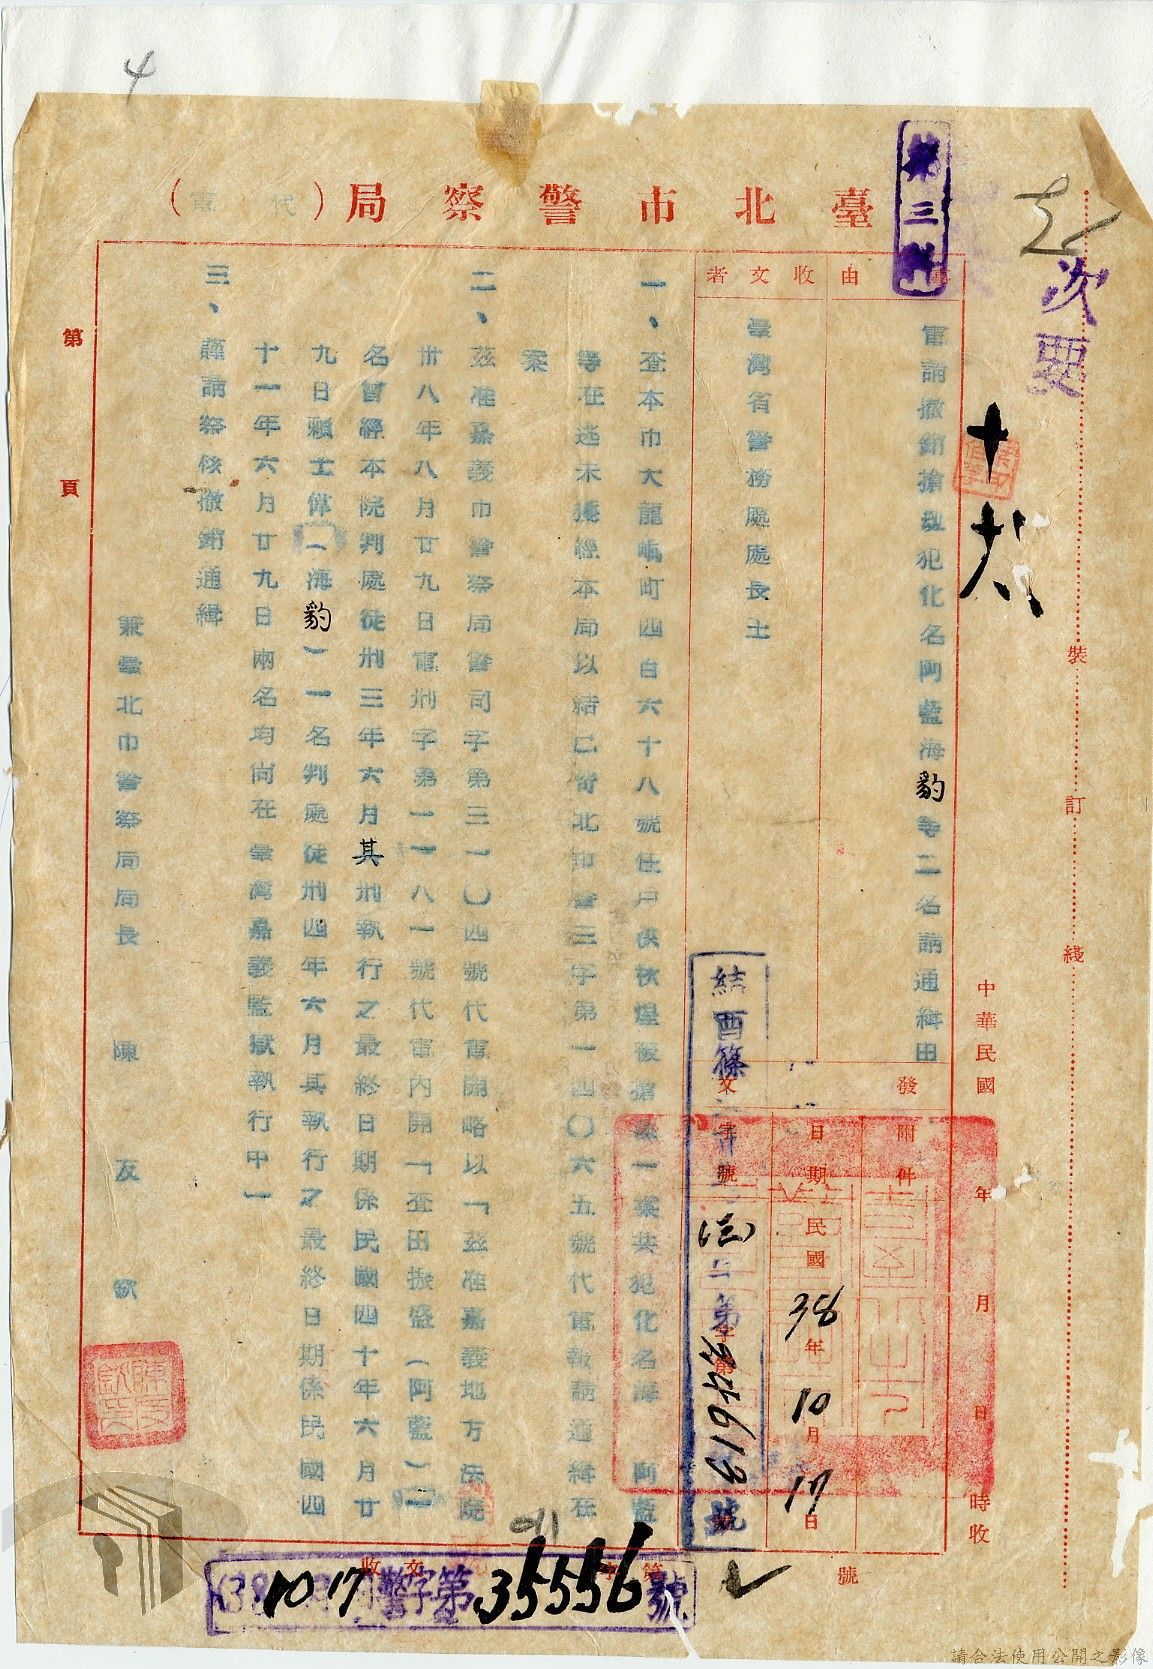 4
臺北市警察局（代電）
第三科
次要
事由
電請撤銷搶刼犯化名阿藍海豹等二名請通緝由
收文者
臺灣省警務處處長王
中華民國 年 月 日 時收
發文
附件
日期
民國38年10月17日
字號
結酉篠
第61946號
一、查本市大龍峒町四百六十八號住戶
被搶刼一案共犯化名海豹阿藍
等在逃未獲經本局以
北市警三字第一四〇六五號代電報請通緝在
案
二、茲准嘉義市警察局警司字第三一〇四號代電開略以「茲准嘉義地方法院
卅八年八月廿九日電刑字第一一八一號代電內開「查田振盛（阿藍）一
名曾經本院判處徒刑三年六月其刑執行之最終日期係民國四十年六月廿
九日賴士偉（海豹）一名判處徒刑四年六月其執行之最終日期係民國四
十一年六月廿九日兩名均尚在臺灣嘉義監獄執行中」
三、謹請察核撤銷通緝
兼臺北市警察局局長 陳友欽
第 頁
裝 訂 綫
收文 字第 號
38 10 17 警字第35556號
請合法使用公開之影像